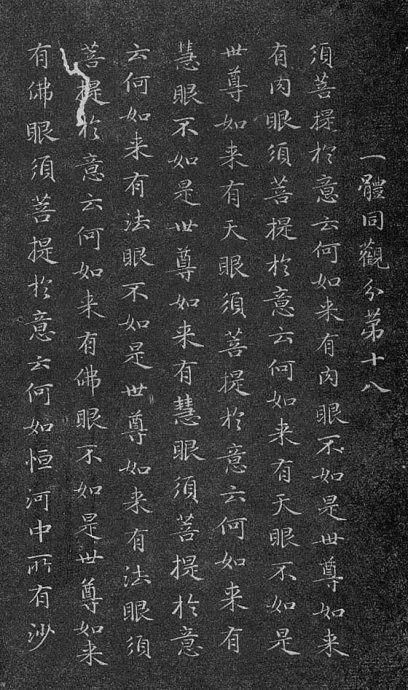 一體同觀分第十八
須菩提於意云何如来有肉眼不如是世尊如来
有肉眼須菩提於意云何如来有天眼不如是
世尊如来有天眼須菩提於意云何如来有
慧眼不如是世尊如来有慧眼須菩提於意
云何如来有法眼不如是世尊如来有法眼須
菩提於意云何如来有佛眼不如是世尊如来
有佛眼須菩提於意云何如恒河中所有沙